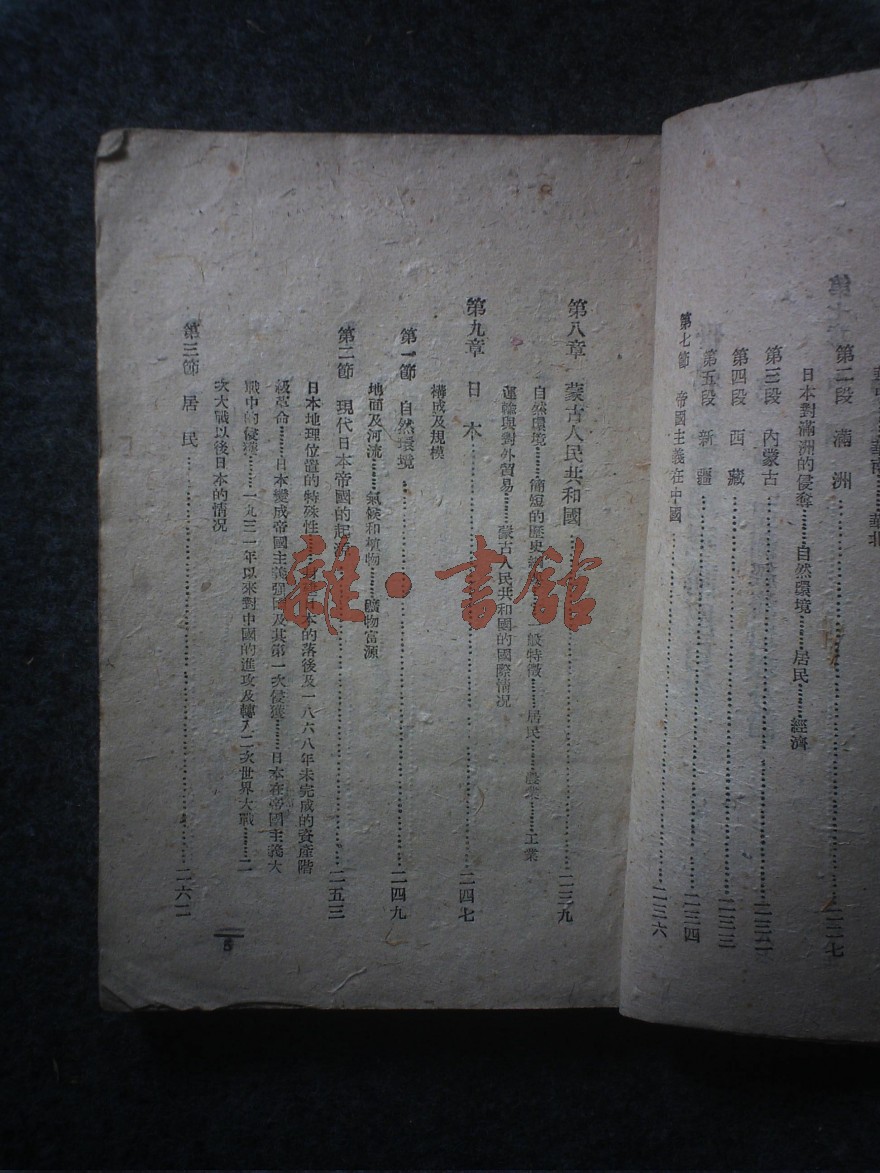 第二段 滿洲………二二七
日本對滿洲的侵奪………自然環境………居民………經濟
第三段 內蒙古………二三二
第四段 西藏………二三三
第五段 新疆………二三四
第七節 帝國主義在中國………二三六
第八章 蒙古人民共和國………二三九
自然環境………簡短的歷史 一般特徵………居民………農業………工業
運輸與對外貿易………蒙古人民共和國的國際情况
第九章 日本………二四七
構成及規模
第一節 自然環境………二四九
地面及河流………氣候和植物………礦物富源
第二節 現代日本帝國的起 ………二五三
日本地理位置的特殊性………日本的落後及一八六八年未完成的資產階
級革命………日本變成帝國主義强國及其第一次侵獲………日本在帝國主義大
戰中的侵獲………一九三一年以來對中國的進攻及轉入二次世界大戰………二
次大戰以後日本的情况
第三節 居民………二六二
5
雜·書館